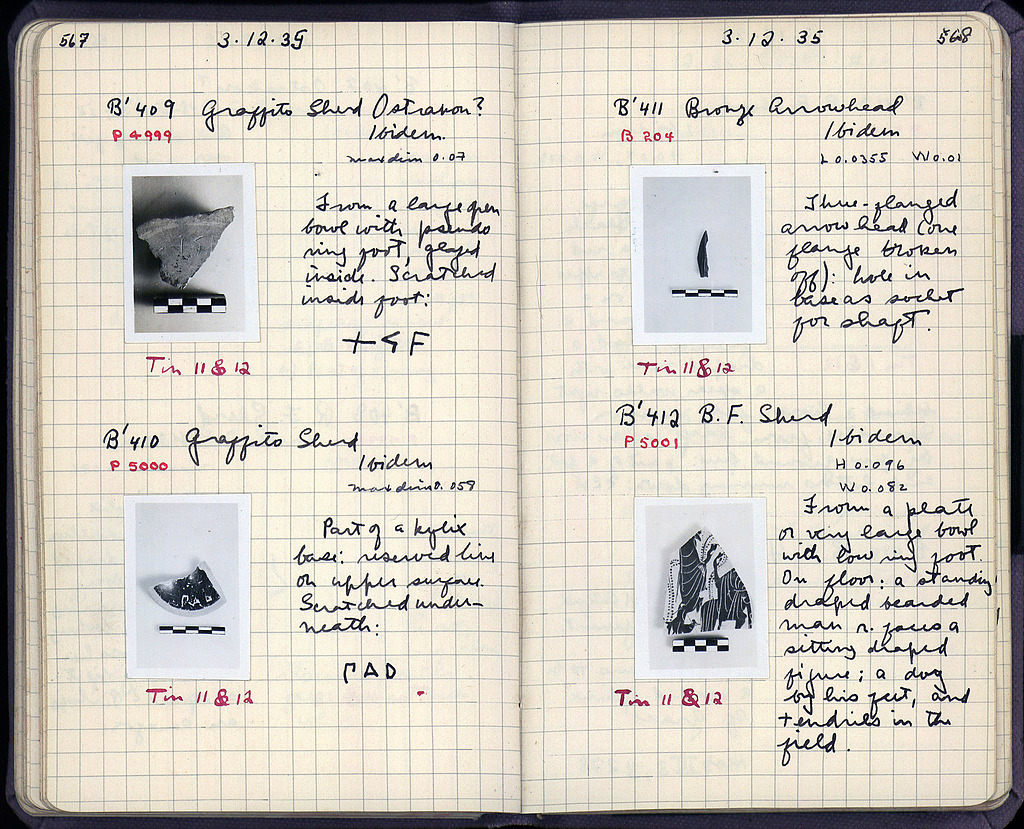 567
3·12·35
B'409 Graffito Sherd Ostrakon?
P 4999
Ibidem
max dim 0.07
From a large open
bowl with pseudo
ring foot, glazed
inside. Scratched
inside foot:
Tin 11 & 12
B'410 Graffito Sherd
P 5000
Ibidem
max dim 0.058
Part of a kylix
base: reserved line
on upper surface.
Scratched under-
neath:
ΓAD
Tin 11 & 12
3·12·35
568
B'411 Bronze Arrowhead
B 204
Ibidem
L 0.0355 W 0.01
Three-flanged
arrowhead (one
flange broken
off): hole in
base as socket
for shaft.
Tin 11 & 12
B'412 B.F. Sherd
P 5001
Ibidem
H 0.096
W 0.082
From a plate
or very large bowl
with low ring foot.
On floor: a standing
draped bearded
man r. faces a
sitting draped
figure; a dog
by his feet, and
tendrils in the
field.
Tin 11 & 12